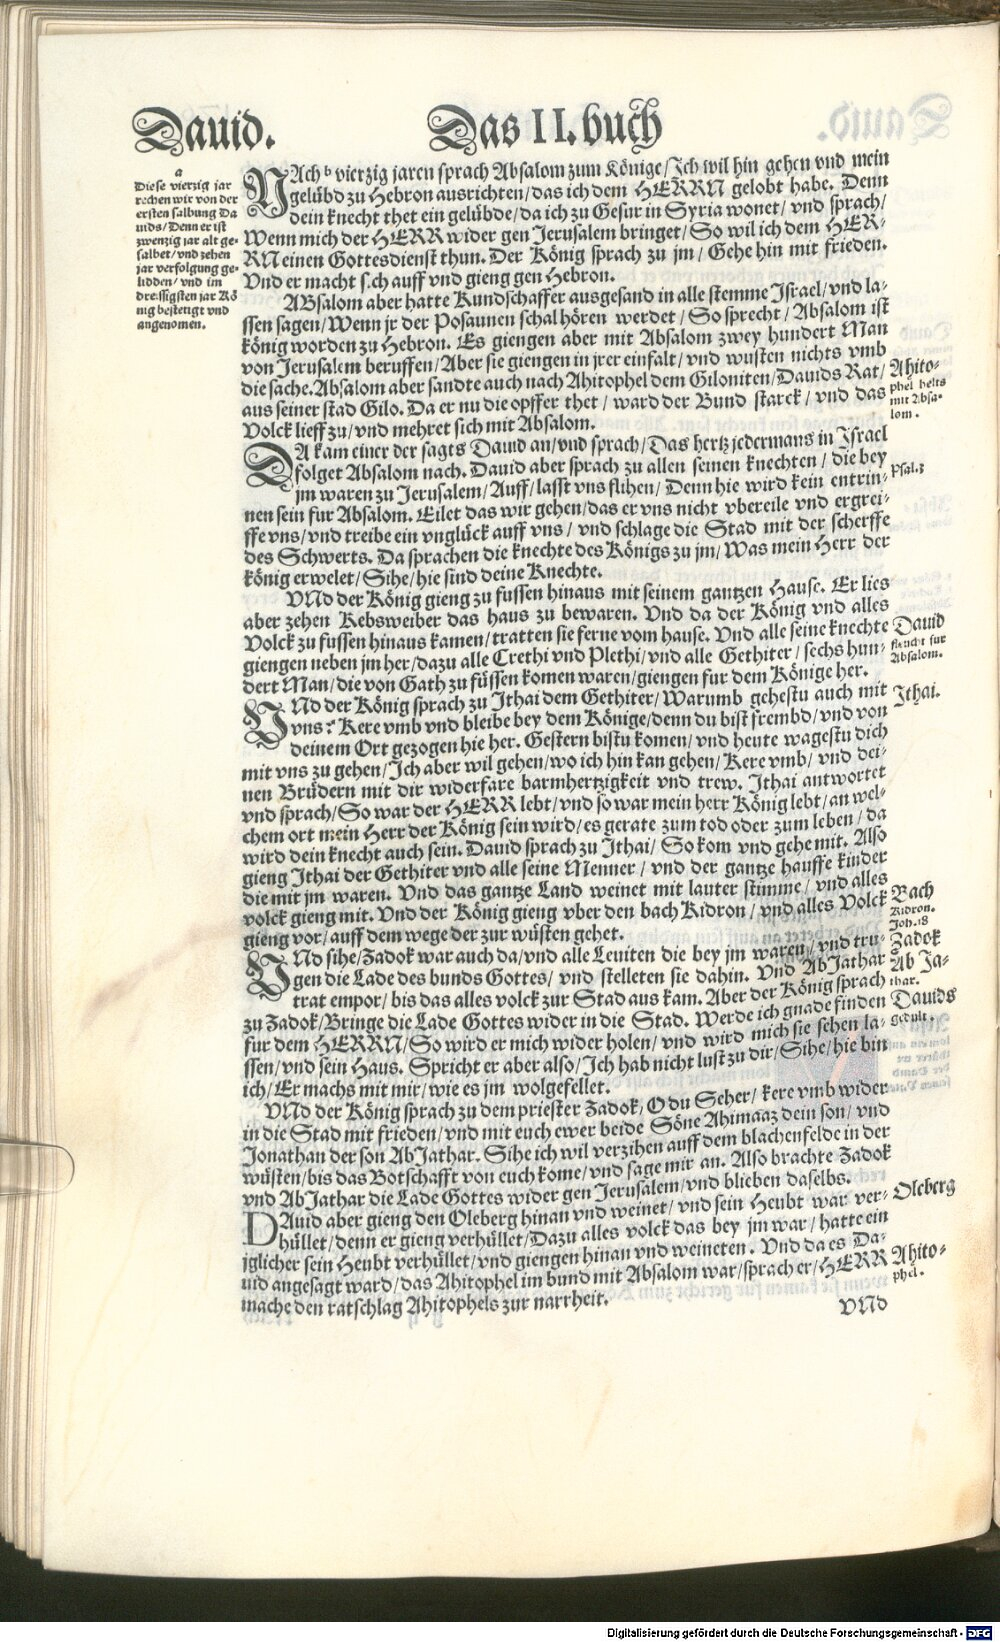 Dauid.
Das II. buch
a
Diese vierzig jar
rechen wir von der
ersten salbung Da
uids/Denn er ist
zwenzig jar alt ge-
salbet/vnd zehen
jar verfolgung ge-
lidden/vnd im
dreissigsten jar Kö
nig bestetigt vnd
angenomen.
NAch b vierzig jaren sprach Absalom zum Könige/Ich wil hin gehen vnd mein
gelübd zu Hebron ausrichten/das ich dem HERRN gelobt habe. Denn
dein knecht thet ein gelübde/da ich zu Gesur in Syria wonet/vnd sprach/
Wenn mich der HERR wider gen Jerusalem bringet/So wil ich dem HER-
RN einen Gottesdienst thun. Der König sprach zu jm/Gehe hin mit frieden.
Vnd er macht sich auff vnd gieng gen Hebron.
ABsalom aber hatte Kundschaffer ausgesand in alle stemme Israel/vnd la-
ssen sagen/Wenn jr der Posaunen schal hören werdet/So sprecht/Absalom ist
könig worden zu Hebron. Es giengen aber mit Absalom zwey hundert Man
von Jerusalem beruffen/Aber sie giengen in jrer einfalt/vnd wusten nichts vmb
die sache. Absalom aber sandte auch nach Ahitophel dem Giloniten/Dauids Rat/
aus seiner stad Gilo. Da er nu die opffer thet/ward der Bund starck/vnd das
Volck lieff zu/vnd mehret sich mit Absalom.
Ahito-
phel helts
mit Absa-
lom.
DA kam einer der sagts Dauid an/vnd sprach/Das hertz jedermans in Israel
folget Absalom nach. Dauid aber sprach zu allen seinen knechten/die bey
jm waren zu Jerusalem/Auff/lasst vns flihen/Denn hie wird kein entrin-
nen sein fur Absalom. Eilet das wir gehen/das er vns nicht vbereile vnd ergrei-
ffe vns/vnd treibe ein vnglück auff vns/vnd schlage die Stad mit der scherffe
des Schwerts. Da sprachen die knechte des Königs zu jm/Was mein Herr der
könig erwelet/Sihe/hie sind deine Knechte.
Psal.3
VNd der König gieng zu fussen hinaus mit seinem gantzen Hause. Er lies
aber zehen Kebsweiber das haus zu bewaren. Vnd da der König vnd alles
Volck zu fussen hinaus kamen/tratten sie ferne vom hause. Vnd alle seine knechte
giengen neben jm her/dazu alle Crethi vnd Plethi/vnd alle Gethiter/sechs hun-
dert Man/die von Gath zu füssen komen waren/giengen fur dem Könige her.
Dauid
fleucht fur
Absalom.
VNd der König sprach zu Ithai dem Gethiter/Warumb gehestu auch mit
vns? Kere vmb vnd bleibe bey dem Könige/denn du bist frembd/vnd von
deinem Ort gezogen hie her. Gestern bistu komen/vnd heute wagestu dich
mit vns zu gehen/Ich aber wil gehen/wo ich hin kan gehen/Kere vmb/vnd dei-
nen Brüdern mit dir widerfare barmhertzigkeit vnd trew. Ithai antwortet
vnd sprach/So war der HERR lebt/vnd so war mein herr König lebt/an wel-
chem ort mein Herr der König sein wird/es gerate zum tod oder zum leben/da
wird dein knecht auch sein. Dauid sprach zu Ithai/So kom vnd gehe mit. Also
gieng Ithai der Gethiter vnd alle seine Menner/vnd der gantze hauffe kinder
die mit jm waren. Vnd das gantze Land weinet mit lauter stimme/vnd alles
volck gieng mit. Vnd der König gieng vber den bach Kidron/vnd alles Volck
gieng vor/auff dem wege der zur wüsten gehet.
Ithai.
Bach
Kidron.
Joh.18
VNd sihe/Zadok war auch da/vnd alle Leuiten die bey jm waren/vnd tru-
gen die Lade des bunds Gottes/vnd stelleten sie dahin. Vnd AbJathar
trat empor/bis das alles volck zur Stad aus kam. Aber der König sprach
zu Zadok/Bringe die Lade Gottes wider in die Stad. Werde ich gnade finden
fur dem HERRN/So wird er mich wider holen/vnd wird mich sie sehen la-
ssen/vnd sein Haus. Spricht er aber also/Ich hab nicht lust zu dir/Sihe/hie bin
ich/Er machs mit mir/wie es jm wolgefellet.
Zadok
Ab Ja-
thar.
Dauids
gedult.
VNd der König sprach zu dem priester Zadok/O du Seher/kere vmb wider
in die Stad mit frieden/vnd mit euch ewer beide Söne Ahimaaz dein son/vnd
Jonathan der son AbJathar. Sihe ich wil verzihen auff dem blachenfelde in der
wüsten/bis das Botschafft von euch kome/vnd sage mir an. Also brachte Zadok
vnd AbJathar die Lade Gottes wider gen Jerusalem/vnd blieben daselbs.
DAuid aber gieng den Oleberg hinan vnd weinet/vnd sein Heubt war ver-
hüllet/denn er gieng verhüllet/Dazu alles volck das bey jm war/hatte ein
iglicher sein Heubt verhüllet/vnd giengen hinan vnd weineten. Vnd da es Da-
uid angesagt ward/das Ahitophel im bund mit Absalom war/sprach er/HERR
mache den ratschlag Ahitophels zur narrheit.
Oleberg
Ahito-
phel.
VNd
Digitalisierung gefördert durch die Deutsche Forschungsgemeinschaft - DFG